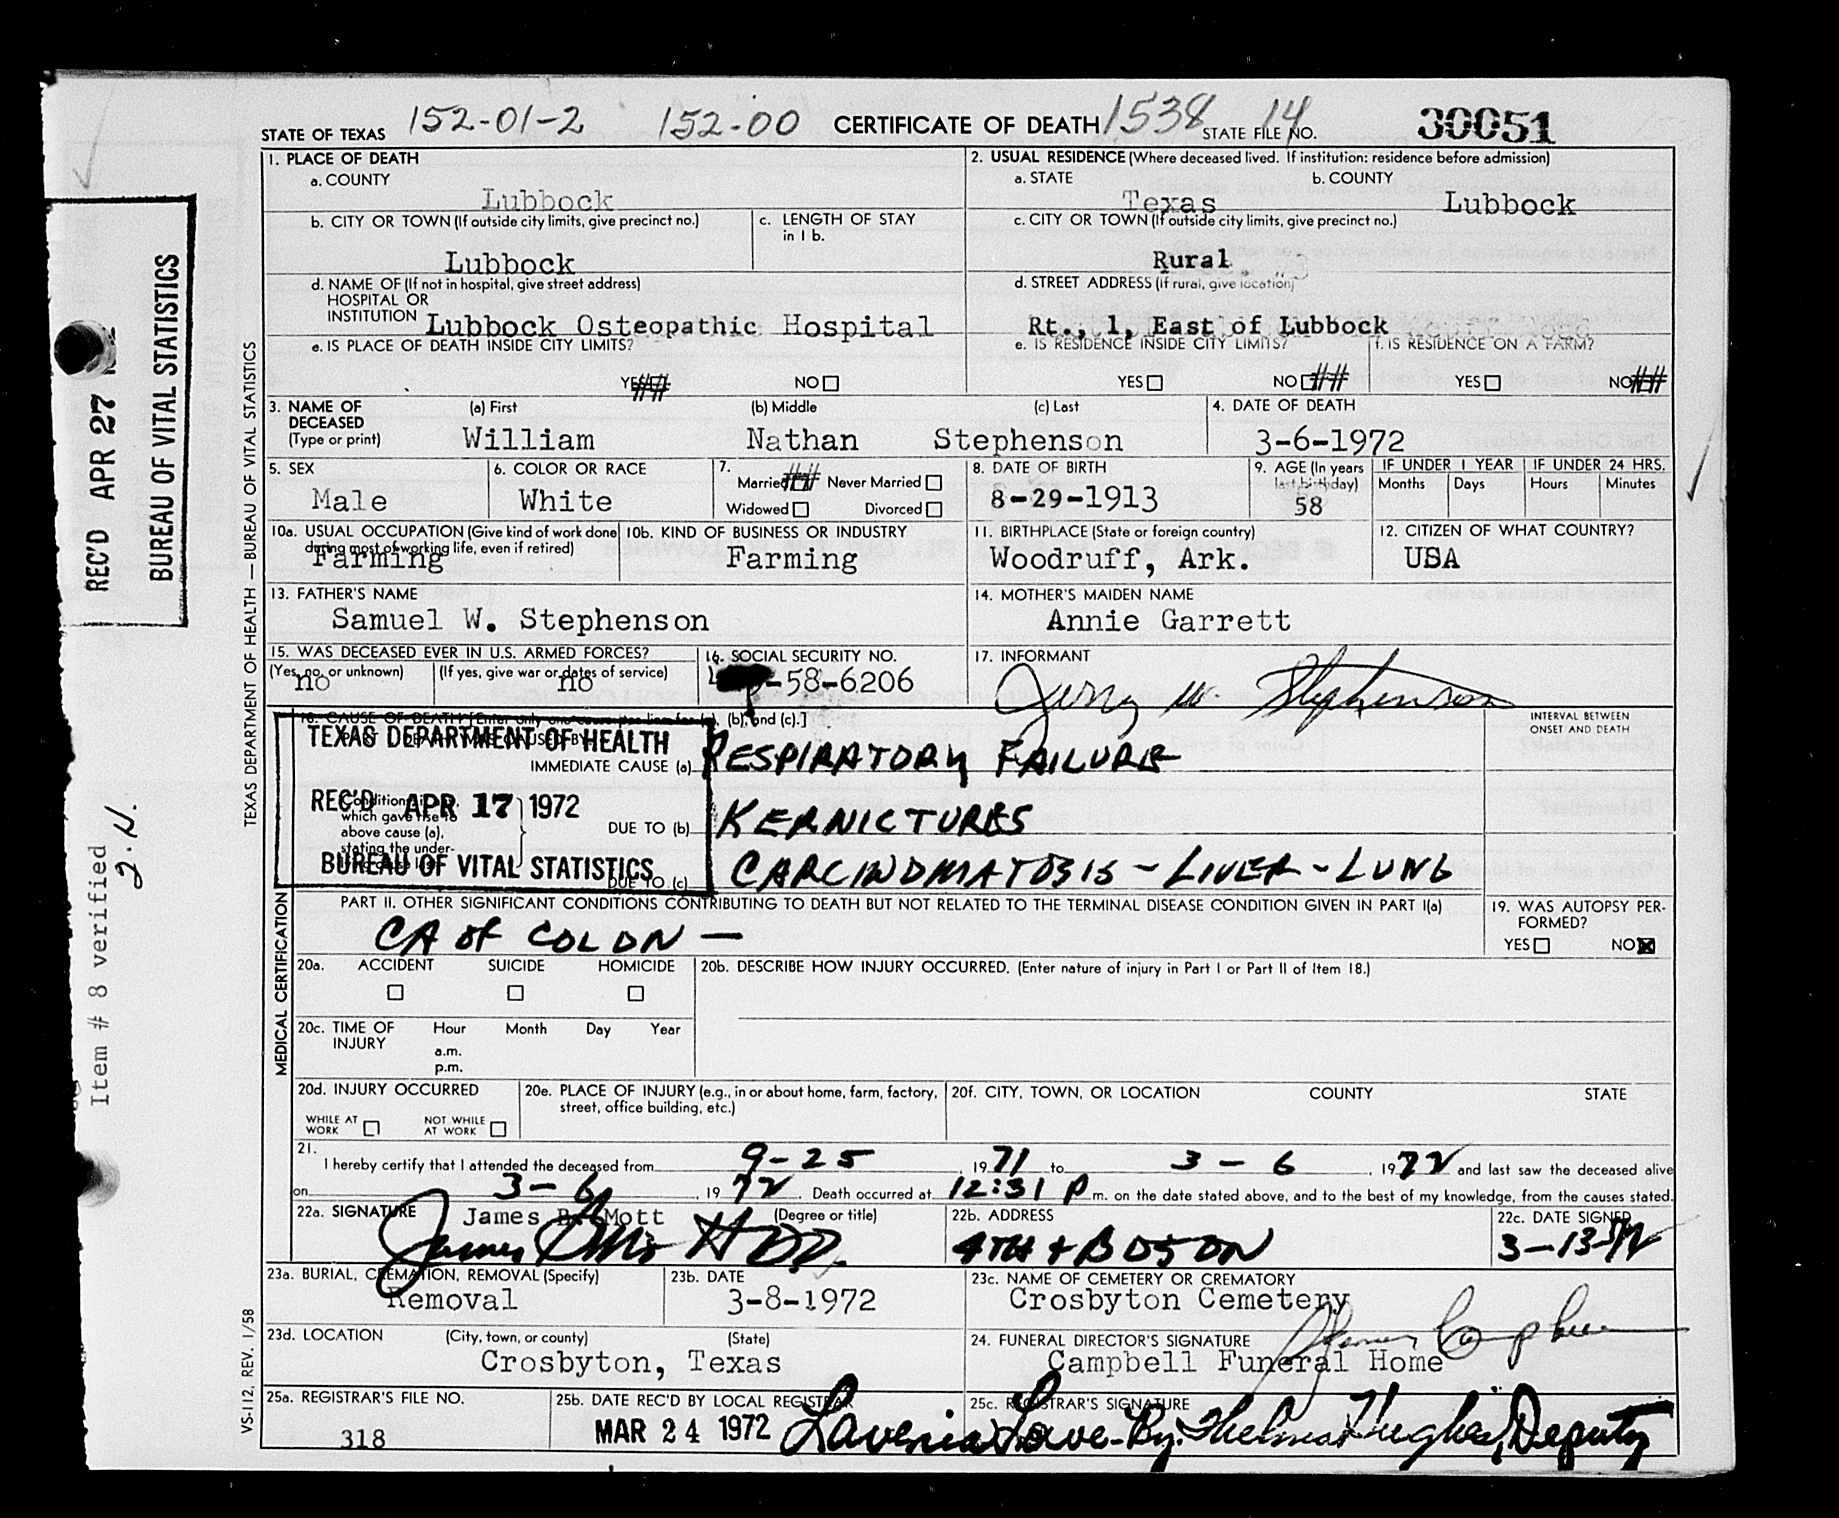 STATE OF TEXAS 152-01-2 152-00 CERTIFICATE OF DEATH 1538 14 STATE FILE NO. 30051
1. PLACE OF DEATH
a. COUNTY
Lubbock
2. USUAL RESIDENCE (Where deceased lived. If institution: residence before admission)
a. STATE b. COUNTY
Texas Lubbock
b. CITY OR TOWN (If outside city limits, give precinct no.)
Lubbock
c. LENGTH OF STAY
in 1 b.
c. CITY OR TOWN (If outside city limits, give precinct no.)
Rural
d. NAME OF (If not in hospital, give street address)
HOSPITAL OR
INSTITUTION Lubbock Osteopathic Hospital
d. STREET ADDRESS (If rural, give location)
Rt., 1, East of Lubbock
e. IS PLACE OF DEATH INSIDE CITY LIMITS?
YES ## NO
e. IS RESIDENCE INSIDE CITY LIMITS?
YES NO ##
f. IS RESIDENCE ON A FARM?
YES NO ##
3. NAME OF
DECEASED
(Type or print)
(a) First (b) Middle (c) Last
William Nathan Stephenson
4. DATE OF DEATH
3-6-1972
5. SEX
Male
6. COLOR OR RACE
White
7.
Married ## Never Married
Widowed Divorced
8. DATE OF BIRTH
8-29-1913
9. AGE (In years
last birthday)
58
IF UNDER 1 YEAR IF UNDER 24 HRS.
Months Days Hours Minutes
10a. USUAL OCCUPATION (Give kind of work done
during most of working life, even if retired)
Farming
10b. KIND OF BUSINESS OR INDUSTRY
Farming
11. BIRTHPLACE (State or foreign country)
Woodruff, Ark.
12. CITIZEN OF WHAT COUNTRY?
USA
13. FATHER'S NAME
Samuel W. Stephenson
14. MOTHER'S MAIDEN NAME
Annie Garrett
15. WAS DECEASED EVER IN U.S. ARMED FORCES?
(Yes, no, or unknown) (If yes, give war or dates of service)
no no
16. SOCIAL SECURITY NO.
-58-6206
17. INFORMANT
Jerry W Stephenson
18. CAUSE OF DEATH [Enter only one cause per line for (a), (b), and (c).]
INTERVAL BETWEEN
ONSET AND DEATH
TEXAS DEPARTMENT OF HEALTH
REC'D APR 17 1972
BUREAU OF VITAL STATISTICS
IMMEDIATE CAUSE (a) RESPIRATORY FAILURE
Conditions
which gave rise to
above cause (a),
stating the under-
DUE TO (b) KERNICTURES
DUE TO (c) CARCINOMATOSIS - LIVER - LUNG
PART II. OTHER SIGNIFICANT CONDITIONS CONTRIBUTING TO DEATH BUT NOT RELATED TO THE TERMINAL DISEASE CONDITION GIVEN IN PART I(a)
CA OF COLON —
19. WAS AUTOPSY PER-
FORMED?
YES NO
20a. ACCIDENT SUICIDE HOMICIDE
20b. DESCRIBE HOW INJURY OCCURRED. (Enter nature of injury in Part I or Part II of Item 18.)
20c. TIME OF
INJURY
Hour Month Day Year
a.m.
p.m.
20d. INJURY OCCURRED
WHILE AT
WORK
NOT WHILE
AT WORK
20e. PLACE OF INJURY (e.g., in or about home, farm, factory,
street, office building, etc.)
20f. CITY, TOWN, OR LOCATION COUNTY STATE
21.
I hereby certify that I attended the deceased from 9-25, 1971 to 3-6, 1972 and last saw the deceased alive
on 3-6, 1972. Death occurred at 12:31 P m. on the date stated above, and to the best of my knowledge, from the causes stated.
22a. SIGNATURE (Degree or title)
James B. Mott
22b. ADDRESS
4TH + BOSTON
22c. DATE SIGNED
3-13-72
23a. BURIAL, CREMATION, REMOVAL (Specify)
Removal
23b. DATE
3-8-1972
23c. NAME OF CEMETERY OR CREMATORY
Crosbyton Cemetery
23d. LOCATION (City, town, or county) (State)
Crosbyton, Texas
24. FUNERAL DIRECTOR'S SIGNATURE
Campbell Funeral Home
25a. REGISTRAR'S FILE NO.
318
25b. DATE REC'D BY LOCAL REGISTRAR
MAR 24 1972
25c. REGISTRAR'S SIGNATURE
Lavenia Lowe - By. Thelma Hughes, Deputy
TEXAS DEPARTMENT OF HEALTH — BUREAU OF VITAL STATISTICS
MEDICAL CERTIFICATION
VS-112, REV. 1/58
REC'D APR 27
BUREAU OF VITAL STATISTICS
Item # 8 verified